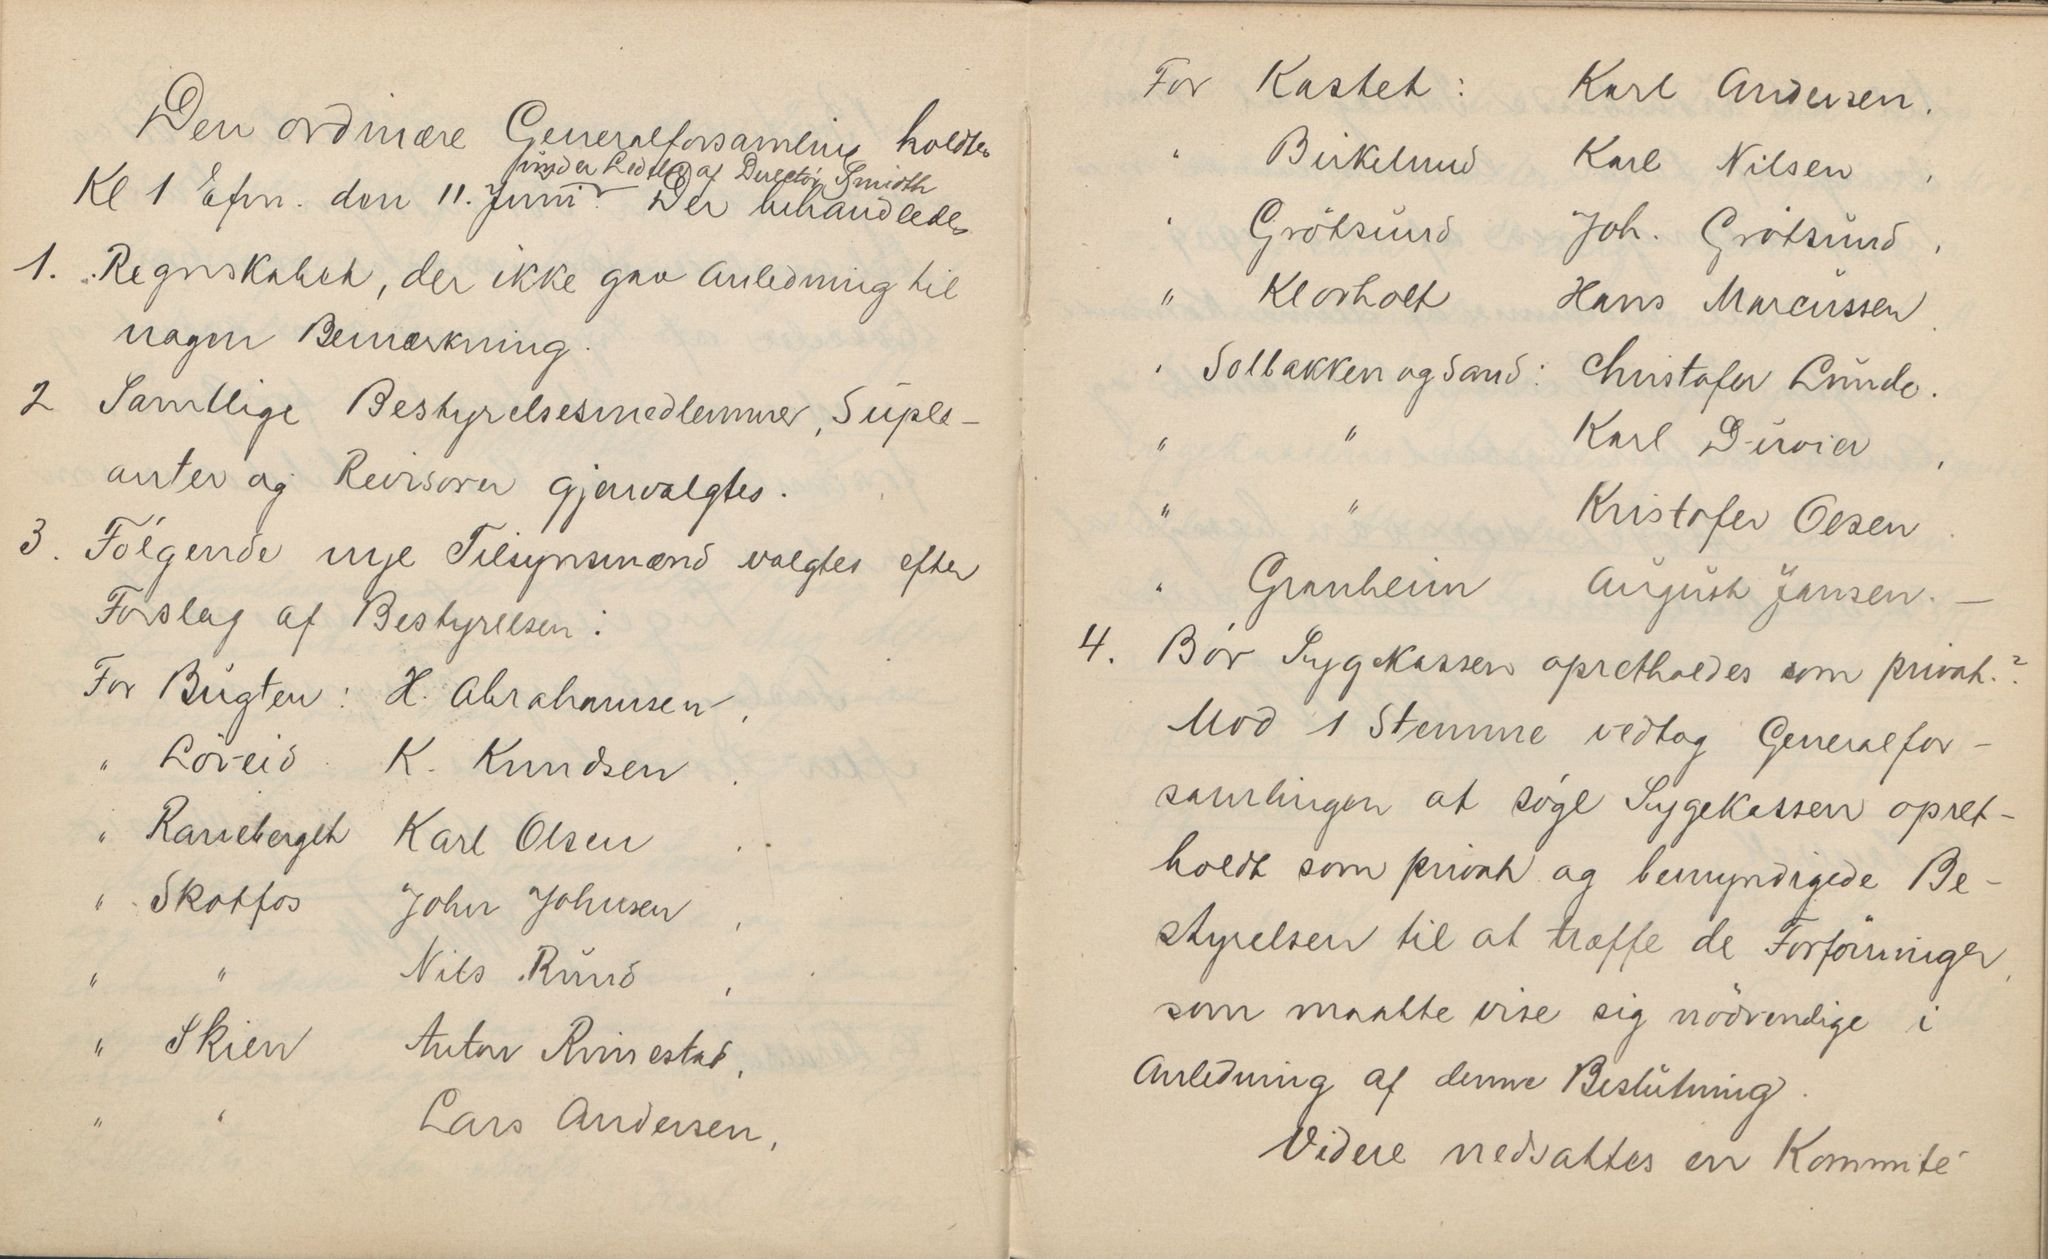 Den ordinære Generalforsamling holdtes
under Ledelse af Director Smidth
Kl 1 Efm. den 11. Juni. Der behandledes
1. Regnskabet, der ikke gav Anledning til
nogen Bemærkning.
2 Samtlige Bestyrelsesmedlemmer, Suple-
anter og Revisorer gjenvalgtes.
3. Følgende nye Tilsynsmænd valgtes efter
Forslag af Bestyrelsen:
For Bugten: H. Abrahamsen,
" Löveid K. Knudsen,
" Raneberget Karl Olsen,
" Skotfos John Johnsen,
" " Nils Rund,
" Skien Anton Rimestad,
" " Lars Andersen,
For Kastet: Karl Andersen,
" Birkelund Karl Nilsen,
" Grötsund Joh. Grötsund,
" Klovholt Hans Marcussen,
" Solbakken og Sand: Christofer Lunde.
" " Karl
" " Kristofer Olsen.
" Granheim August Jansen. —
4. Bør Sygekassen opretholdes som privat?
Mod 1 Stemme vedtog Generalfor-
samlingen at søge Sygekassen opret-
holdt som privat og bemyndigede Be-
styrelsen til at træffe de Forföininger,
som maatte vise sig nödvendige i
Anledning af denne Beslutning.
Videre nedsattes en Kommité